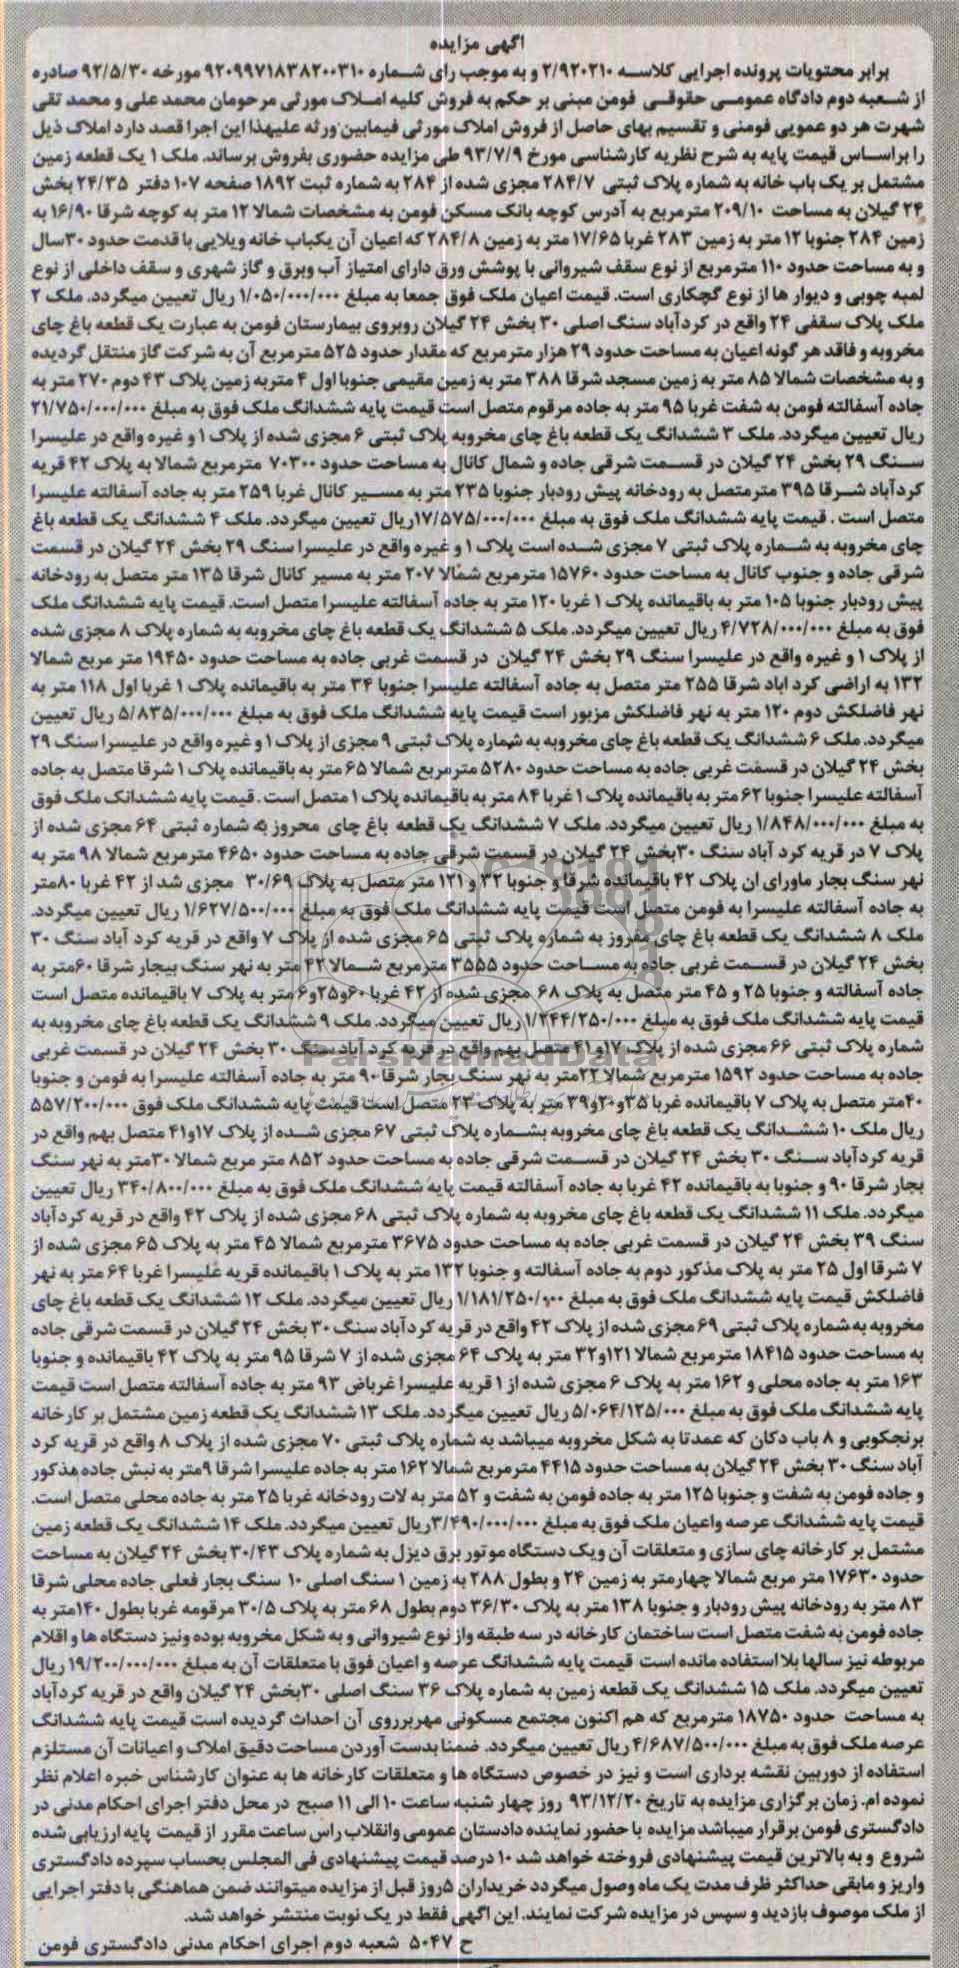 آگهی مزایده
برابر محتویات پرونده اجرایی کلاسه ۲/۹۲۰۲۱۰ و به موجب رای شماره ۹۲۰۹۹۷۱۸۳۸۲۰۰۳۱۰ مورخه ۹۲/۵/۳۰ صادره
از شعبه دوم دادگاه عمومی حقوقی فومن مبنی بر حکم به فروش کلیه املاک مورثی مرحومان محمد علی و محمد تقی
شهرت هر دو عمویی فومنی و تقسیم بهای حاصل از فروش املاک مورثی فیمابین ورثه علیهذا این اجرا قصد دارد املاک ذیل
را براساس قیمت پایه به شرح نظریه کارشناسی مورخ ۹۳/۷/۹ طی مزایده حضوری بفروش برساند. ملک ۱ یک قطعه زمین
مشتمل بر یک باب خانه به شماره پلاک ثبتی ۲۸۴/۷ مجزی شده از ۲۸۴ به شماره ثبت ۱۸۹۲ صفحه ۱۰۷ دفتر ۲۴/۳۵ بخش
۲۴ گیلان به مساحت ۲۰۹/۱۰ مترمربع به آدرس کوچه بانک مسکن فومن به مشخصات شمالا ۱۲ متر به کوچه شرقا ۱۶/۹۰ به
زمین ۲۸۴ جنوبا ۱۲ متر به زمین ۲۸۳ غربا ۱۷/۶۵ متر به زمین ۲۸۴/۸ که اعیان آن یکباب خانه ویلایی با قدمت حدود ۳۰سال
و به مساحت حدود ۱۱۰ مترمربع از نوع سقف شیروانی با پوشش ورق دارای امتیاز آب وبرق و گاز شهری و سقف داخلی از نوع
لمبه چوبی و دیوار ها از نوع گچکاری است. قیمت اعیان ملک فوق جمعا به مبلغ ۱/۰۵۰/۰۰۰/۰۰۰ ریال تعیین میگردد. ملک ۲
ملک پلاک سقفی ۲۴ واقع در کردآباد سنگ اصلی ۳۰ بخش ۲۴ گیلان روبروی بیمارستان فومن به عبارت یک قطعه باغ چای
مخروبه و فاقد هر گونه اعیان به مساحت حدود ۲۹ هزار مترمربع که مقدار حدود ۵۲۵ مترمربع آن به شرکت گاز منتقل گردیده
و به مشخصات شمالا ۸۵ متر به زمین مسجد شرقا ۳۸۸ متر به زمین مقیمی جنوبا اول ۴ متربه زمین پلاک ۴۳ دوم ۲۷۰ متر به
جاده آسفالته فومن به شفت غربا ۹۵ متر به جاده مرقوم متصل است قیمت پایه ششدانگ ملک فوق به مبلغ ۲۱/۷۵۰/۰۰۰/۰۰۰
ریال تعیین میگردد. ملک ۳ ششدانگ یک قطعه باغ چای مخروبه پلاک ثبتی ۶ مجزی شده از پلاک ۱ و غیره واقع در علیسرا
سنگ ۲۹ بخش ۲۴ گیلان در قسمت شرقی جاده و شمال کانال به مساحت حدود ۷۰۳۰۰ مترمربع شمالا به پلاک ۴۲ قریه
کردآباد شرقا ۳۹۵ مترمتصل به رودخانه پیش رودبار جنوبا ۲۳۵ متر به مسیر کانال غربا ۲۵۹ متر به جاده آسفالته علیسرا
متصل است . قیمت پایه ششدانگ ملک فوق به مبلغ ۱۷/۵۷۵/۰۰۰/۰۰۰ریال تعیین میگردد. ملک ۴ ششدانگ یک قطعه باغ
چای مخروبه به شماره پلاک ثبتی ۷ مجزی شده است پلاک ۱ و غیره واقع در علیسرا سنگ ۲۹ بخش ۲۴ گیلان در قسمت
شرقی جاده و جنوب کانال به مساحت حدود ۱۵۷۶۰ مترمربع شمالا ۲۰۷ متر به مسیر کانال شرقا ۱۳۵ متر متصل به رودخانه
پیش رودبار جنوبا ۱۰۵ متر به باقیمانده پلاک ۱ غربا ۱۲۰ متر به جاده آسفالته علیسرا متصل است. قیمت پایه ششدانگ ملک
فوق به مبلغ ۴/۷۲۸/۰۰۰/۰۰۰ ریال تعیین میگردد. ملک ۵ ششدانگ یک قطعه باغ چای مخروبه به شماره پلاک ۸ مجزی شده
از پلاک ۱ و غیره واقع در علیسرا سنگ ۲۹ بخش ۲۴ گیلان در قسمت غربی جاده به مساحت حدود ۱۹۴۵۰ متر مربع شمالا
۱۳۲ به اراضی کرد اباد شرقا ۲۵۵ متر متصل به جاده آسفالته علیسرا جنوبا ۳۴ متر به باقیمانده پلاک ۱ غربا اول ۱۱۸ متر به
نهر فاضلکش دوم ۱۲۰ متر به نهر فاضلکش مزبور است قیمت پایه ششدانگ ملک فوق به مبلغ ۵/۸۳۵/۰۰۰/۰۰۰ ریال تعیین
میگردد. ملک ۶ ششدانگ یک قطعه باغ چای مخروبه به شماره پلاک ثبتی ۹ مجزی از پلاک ۱ و غیره واقع در علیسرا سنگ ۲۹
بخش ۲۴ گیلان در قسمت غربی جاده به مساحت حدود ۵۲۸۰ مترمربع شمالا ۶۵ متر به باقیمانده پلاک ۱ شرقا متصل به جاده
آسفالته علیسرا جنوبا ۶۲ متر به باقیمانده پلاک ۱ غربا ۸۴ متر به باقیمانده پلاک ۱ متصل است . قیمت پایه ششدانک ملک فوق
به مبلغ ۱/۸۴۸/۰۰۰/۰۰۰ ریال تعیین میگردد. ملک ۷ ششدانگ یک قطعه باغ چای محروز به شماره ثبتی ۶۴ مجزی شده از
پلاک ۷ در قریه کرد آباد سنگ ۳۰بخش ۲۴ گیلان در قسمت شرقی جاده به مساحت حدود ۴۶۵۰ مترمربع شمالا ۹۸ متر به
نهر سنگ بجار ماورای ان پلاک ۴۲ باقیمانده شرقا و جنوبا ۳۲ و ۱۲۱ متر متصل به پلاک ۳۰/۶۹ مجزی شد از ۴۲ غربا ۸۰متر
به جاده آسفالته علیسرا به فومن متصل است قیمت پایه ششدانگ ملک فوق به مبلغ ۱/۶۲۷/۵۰۰/۰۰۰ ریال تعیین میگردد.
ملک ۸ ششدانگ یک قطعه باغ چای مفروز به شماره پلاک ثبتی ۶۵ مجزی شده از پلاک ۷ واقع در قریه کرد آباد سنگ ۳۰
بخش ۲۴ گیلان در قسمت غربی جاده به مساحت حدود ۳۵۵۵ مترمربع شمالا ۴۲ متر به نهر سنگ بیجار شرقا ۶۰متر به
جاده آسفالته و جنوبا ۲۵ و ۴۵ متر متصل به پلاک ۶۸ مجزی شده از ۴۲ غربا ۶۰و۲۵و۶ متر به پلاک ۷ باقیمانده متصل است
قیمت پایه ششدانگ ملک فوق به مبلغ ۱/۲۴۴/۲۵۰/۰۰۰ ریال تعیین میگردد. ملک ۹ ششدانگ یک قطعه باغ چای مخروبه به
شماره پلاک ثبتی ۶۶ مجزی شده از پلاک ۱۷و۴۱ متصل بهم واقع در قریه کرد آباد سنگ ۳۰ بخش ۲۴ گیلان در قسمت غربی
جاده به مساحت حدود ۱۵۹۲ مترمربع شمالا ۲۲متر به نهر سنگ بجار شرقا ۹۰ متر به جاده آسفالته علیسرا به فومن و جنوبا
۴۰متر متصل به پلاک ۷ باقیمانده غربا ۳۵و۲۰و۳۹ متر به پلاک ۲۳ متصل است قیمت پایه ششدانگ ملک فوق ۵۵۷/۲۰۰/۰۰۰
ریال ملک ۱۰ ششدانگ یک قطعه باغ چای مخروبه بشماره پلاک ثبتی ۶۷ مجزی شده از پلاک ۱۷و۴۱ متصل بهم واقع در
قریه کردآباد سنگ ۳۰ بخش ۲۴ گیلان در قسمت شرقی جاده به مساحت حدود ۸۵۲ متر مربع شمالا ۳۰متر به نهر سنگ
بجار شرقا ۹۰ و جنوبا به باقیمانده ۴۲ غربا به جاده آسفالته قیمت پایه ششدانگ ملک فوق به مبلغ ۳۴۰/۸۰۰/۰۰۰ ریال تعیین
میگردد. ملک ۱۱ ششدانگ یک قطعه باغ چای مخروبه به شماره پلاک ثبتی ۶۸ مجزی شده از پلاک ۴۲ واقع در قریه کردآباد
سنگ ۳۹ بخش ۲۴ گیلان در قسمت غربی جاده به مساحت حدود ۳۶۷۵ مترمربع شمالا ۴۵ متر به پلاک ۶۵ مجزی شده از
۷ شرقا اول ۲۵ متر به پلاک مذکور دوم به جاده آسفالته و جنوبا ۱۳۲ متر به پلاک ۱ باقیمانده قریه علیسرا غربا ۶۴ متر به نهر
فاضلکش قیمت پایه ششدانگ ملک فوق به مبلغ ۱/۱۸۱/۲۵۰/۰۰۰ ریال تعیین میگردد. ملک ۱۲ ششدانگ یک قطعه باغ چای
مخروبه به شماره پلاک ثبتی ۶۹ مجزی شده از پلاک ۴۲ واقع در قریه کردآباد سنگ ۳۰ بخش ۲۴ گیلان در قسمت شرقی جاده
به مساحت حدود ۱۸۴۱۵ مترمربع شمالا ۱۲۱و۳۲ متر به پلاک ۶۴ مجزی شده از ۷ شرقا ۹۵ متر به پلاک ۴۲ باقیمانده و جنوبا
۱۶۳ متر به جاده محلی و ۱۶۲ متر به پلاک ۶ مجزی شده از ۱ قریه علیسرا غرباض ۹۳ متر به جاده آسفالته متصل است قیمت
پایه ششدانگ ملک فوق به مبلغ ۵/۰۶۴/۱۲۵/۰۰۰ ریال تعیین میگردد. ملک ۱۳ ششدانگ یک قطعه زمین مشتمل بر کارخانه
برنجکوبی و ۸ باب دکان که عمدتا به شکل مخروبه میباشد به شماره پلاک ثبتی ۷۰ مجزی شده از پلاک ۸ واقع در قریه کرد
آباد سنگ ۳۰ بخش ۲۴ گیلان به مساحت حدود ۴۴۱۵ مترمربع شمالا ۱۶۲ متر به جاده علیسرا شرقا ۹متر به نبش جاده مذکور
و جاده فومن به شفت و جنوبا ۱۲۵ متر به جاده فومن به شفت و ۵۲ متر به لات رودخانه غربا ۲۵ متر به جاده محلی متصل است.
قیمت پایه ششدانگ عرصه واعیان ملک فوق به مبلغ ۳/۴۹۰/۰۰۰/۰۰۰ریال تعیین میگردد. ملک ۱۴ ششدانگ یک قطعه زمین
مشتمل بر کارخانه چای سازی و متعلقات آن ویک دستگاه موتور برق دیزل به شماره پلاک ۳۰/۴۳ بخش ۲۴ گیلان به مساحت
حدود ۱۷۶۳۰ متر مربع شمالا چهارمتر به زمین ۲۴ و بطول ۲۸۸ به زمین ۱ سنگ اصلی ۱۰ سنگ بجار فعلی جاده محلی شرقا
۸۳ متر به رودخانه پیش رودبار و جنوبا ۱۳۸ متر به پلاک ۳۶/۳۰ دوم بطول ۶۸ متر به پلاک ۳۰/۵ مرقومه غربا بطول ۱۴۰متر به
جاده فومن به شفت متصل است ساختمان کارخانه در سه طبقه واز نوع شیروانی و به شکل مخروبه بوده ونیز دستگاه ها و اقلام
مربوطه نیز سالها بلا استفاده مانده است قیمت پایه ششدانگ عرصه و اعیان فوق با متعلقات آن به مبلغ ۱۹/۲۰۰/۰۰۰/۰۰۰ ریال
تعیین میگردد. ملک ۱۵ ششدانگ یک قطعه زمین به شماره پلاک ۳۶ سنگ اصلی ۳۰بخش ۲۴ گیلان واقع در قریه کردآباد
به مساحت حدود ۱۸۷۵۰ مترمربع که هم اکنون مجتمع مسکونی مهربرروی آن احداث گردیده است قیمت پایه ششدانگ
عرصه ملک فوق به مبلغ ۴/۶۸۷/۵۰۰/۰۰۰ ریال تعیین میگردد. ضمنا بدست آوردن مساحت دقیق املاک و اعیانات آن مستلزم
استفاده از دوربین نقشه برداری است و نیز در خصوص دستگاه ها و متعلقات کارخانه ها به عنوان کارشناس خبره اعلام نظر
نموده ام. زمان برگزاری مزایده به تاریخ ۹۳/۱۲/۲۰ روز چهار شنبه ساعت ۱۰ الی ۱۱ صبح در محل دفتر اجرای احکام مدنی در
دادگستری فومن برقرار میباشد مزایده با حضور نماینده دادستان عمومی وانقلاب راس ساعت مقرر از قیمت پایه ارزیابی شده
شروع و به بالاترین قیمت پیشنهادی فروخته خواهد شد ۱۰ درصد قیمت پیشنهادی فی المجلس بحساب سپرده دادگستری
واریز و مابقی حداکثر ظرف مدت یک ماه وصول میگردد خریداران ۵روز قبل از مزایده میتوانند ضمن هماهنگی با دفتر اجرایی
از ملک موصوف بازدید و سپس در مزایده شرکت نمایند. این آگهی فقط در یک نوبت منتشر خواهد شد.
ح ۵۰۴۷ شعبه دوم اجرای احکام مدنی دادگستری فومن
ParsNamadData